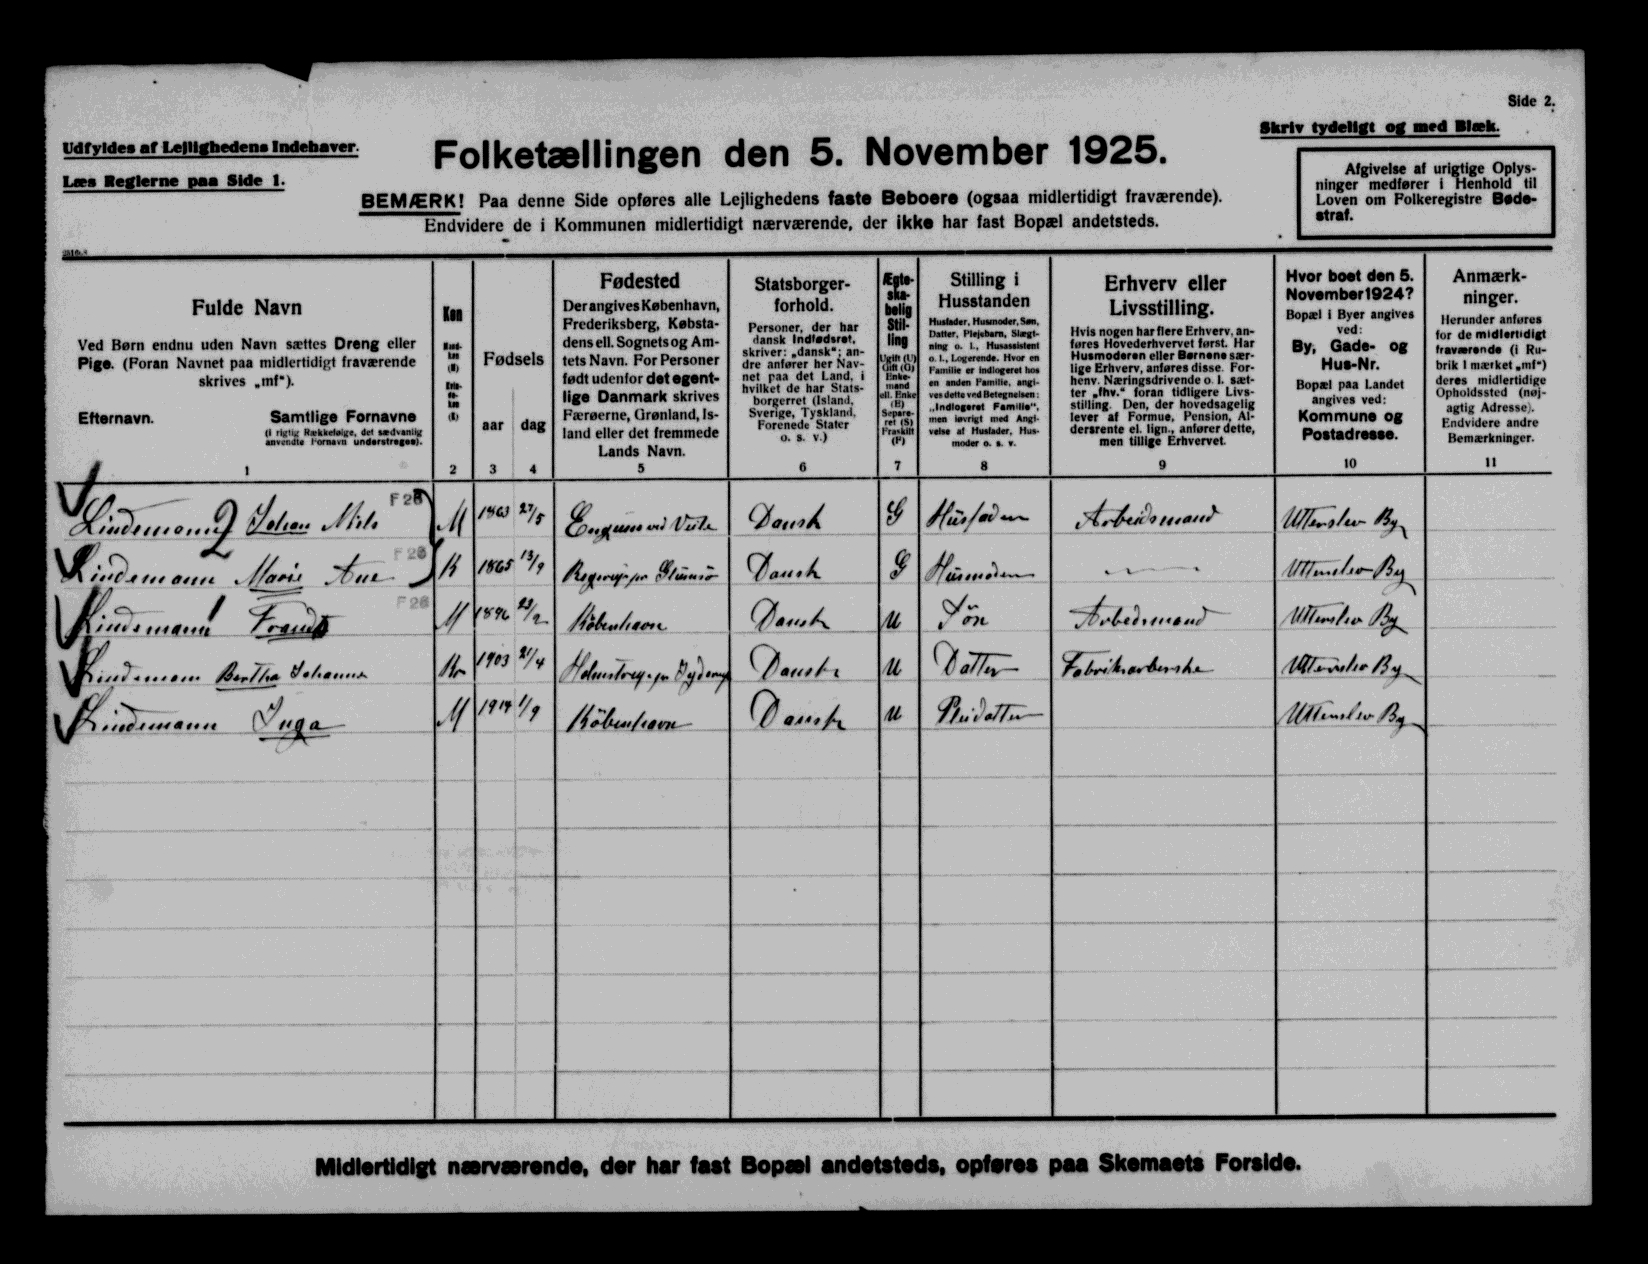 Side 2.
Udfyldes af Lejlighedens Indehaver.
Læs Reglerne paa Side 1.
Folketællingen den 5. November 1925.
Skriv tydeligt og med Blæk.
Afgivelse af urigtige Oplys-
ninger medfører i Henhold til
Loven om Folkeregistre Bøde-
straf.
BEMÆRK! Paa denne Side opføres alle Lejlighedens faste Beboere (ogsaa midlertidigt fraværende).
Endvidere de i Kommunen midlertidigt nærværende, der ikke har fast Bopæl andetsteds.
Fulde Navn
Ved Børn endnu uden Navn sættes Dreng eller
Pige. (Foran Navnet paa midlertidigt fraværende
skrives „mf“).
Efternavn. Samtlige Fornavne
(i rigtig Rækkefølge, det sædvanlig
anvendte Fornavn understreges).
1
Køn
Mand-
køn
(M)
Kvin-
de-
køn
(K)
2
Fødsels
aar dag
3 4
Fødested
Der angives København,
Frederiksberg, Købsta-
dens ell. Sognets og Am-
tets Navn. For Personer
født udenfor det egent-
lige Danmark skrives
Færøerne, Grønland, Is-
land eller det fremmede
Lands Navn.
5
Statsborger-
forhold.
Personer, der har
dansk Indfødsret,
skriver: „dansk“; an-
dre anfører her Nav-
net paa det Land, i
hvilket de har Stats-
borgerret (Island,
Sverige, Tyskland,
Forenede Stater
o. s. v.)
6
Ægte-
ska-
belig
Stil-
ling
Ugift (U)
Gift (G)
Enke-
mand
ell. Enke
(E)
Separe-
ret (S)
Fraskilt
(F)
7
Stilling i
Husstanden
Husfader, Husmoder, Søn,
Datter, Plejebarn, Slægt-
ning o. l., Husassistent
o. l., Logerende. Hvor en
Familie er indlogeret hos
en anden Familie, angi-
ves dette ved Betegnelsen:
„Indlogeret Familie“,
men iøvrigt med Angi-
velse af Husfader, Hus-
moder o. s. v.
8
Erhverv eller
Livsstilling.
Hvis nogen har flere Erhverv, an-
føres Hovederhvervet først. Har
Husmoderen eller Børnene sær-
lige Erhverv, anføres disse. For-
henv. Næringsdrivende o. l. sæt-
ter „fhv.“ foran tidligere Livs-
stilling. Den, der hovedsagelig
lever af Formue, Pension, Al-
dersrente el. lign., anfører dette,
men tillige Erhvervet.
9
Hvor boet den 5.
November 1924?
Bopæl i Byer angives
ved:
By, Gade- og
Hus-Nr.
Bopæl paa Landet
angives ved:
Kommune og
Postadresse.
10
Anmærk-
ninger.
Herunder anføres
for de midlertidigt
fraværende (i Ru-
brik 1 mærket „mf“)
deres midlertidige
Opholdssted (nøj-
agtig Adresse).
Endvidere andre
Bemærkninger.
11
Lindemann 2 Johan Niels F 26 M 1863 27/5 Engum ved Veile Dansk G Husfader Arbeidsmand Utterslev By
Lindemann Marie Ane F 26 K 1865 13/9 pr Glumsø Dansk G Husmoder Utterslev By
Lindemann 1 Frands F 26 M 1896 23/2 København Dansk U Søn Arbedsmand Utterslev By
Lindemann Bertha Johanne K 1903 21/4 Holmstrup pr Jyderup Dansk U Datter Fabriksarberske Utterslev By
Lindemann Inga M 1914 1/9 København Dansk U Pleidatter Utterslev By
Midlertidigt nærværende, der har fast Bopæl andetsteds, opføres paa Skemaets Forside.